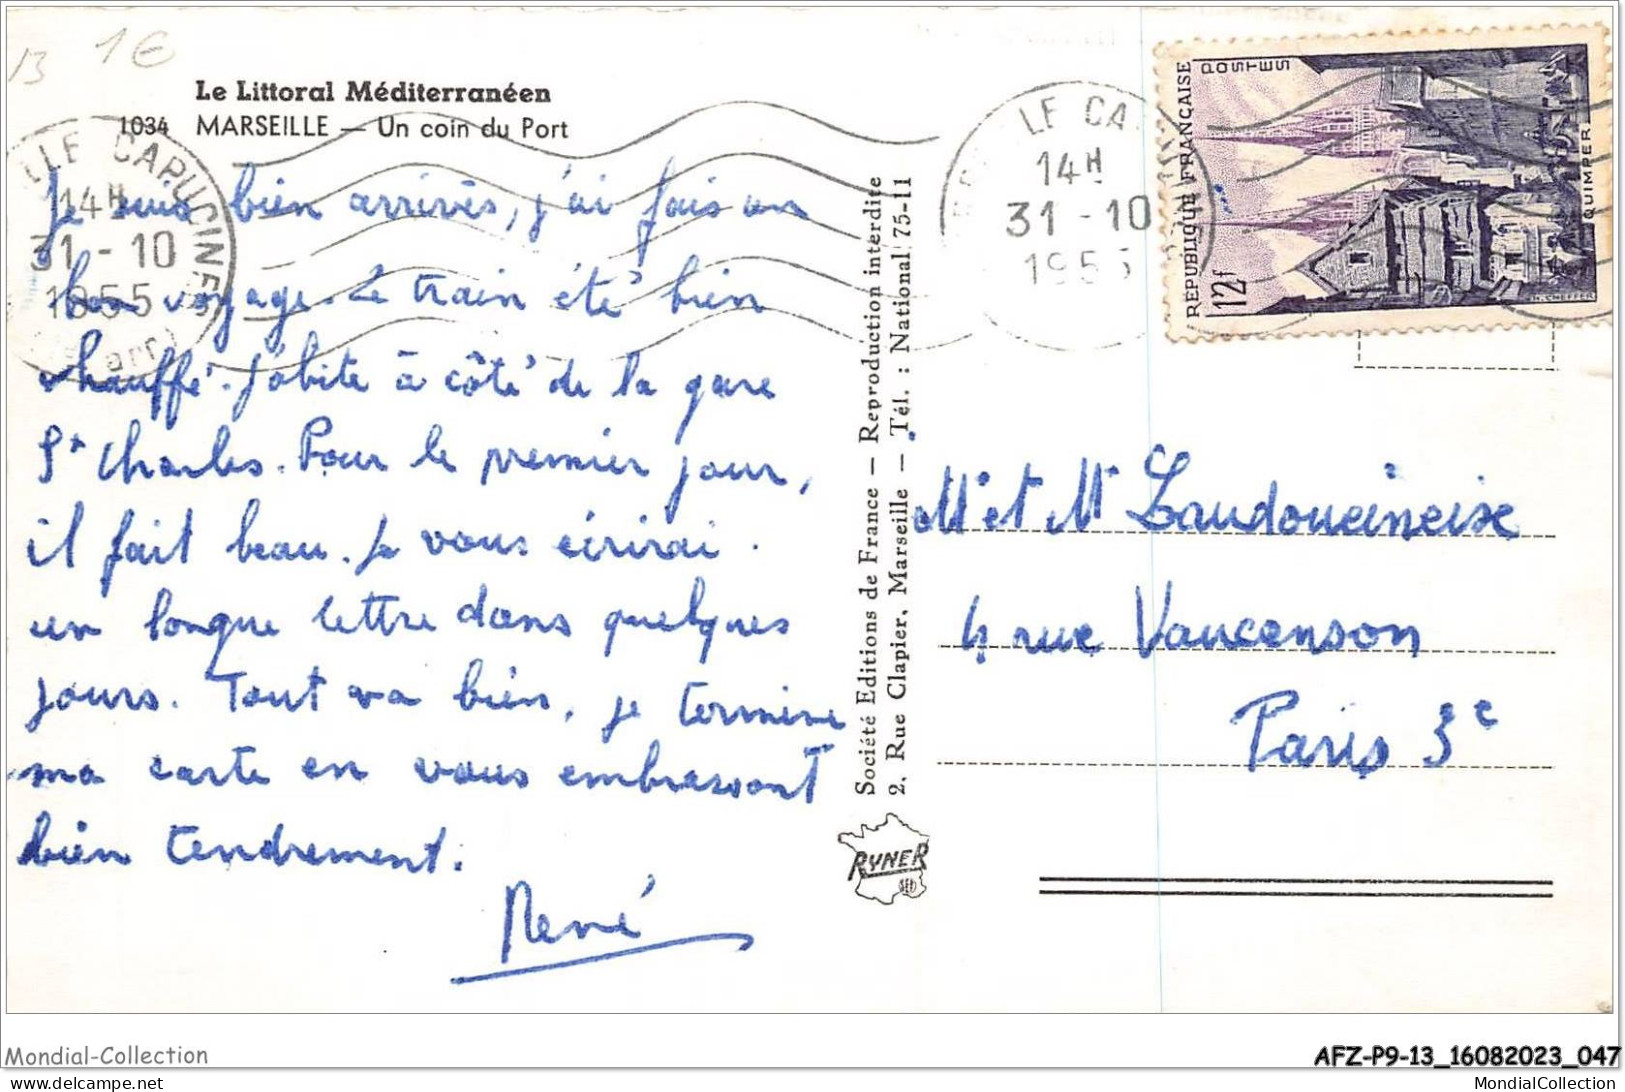 13 1€
Le Littoral Méditerranéen
1034 MARSEILLE — Un coin du Port
LLE CAPUCINES
14H
31-10
1955
arr.)
Je suis bien arrivés, j'ai fais un
bon voyage. Le train été bien
chauffé. J'abite à côté de la gare
St Charles. Pour le premier jour,
il fait beau. Je vous écrirai.
un longue lettre dans quelques
jours. Tout va bien, je termine
ma carte en vous embrassant
bien tendrement.
René
Société Editions de France — Reproduction interdite
2, Rue Clapier, Marseille — Tél. : National 75-11
RYNER
SED
LE CA
14H
31-10
1955
RÉPUBLIQUE FRANÇAISE
POSTES
12f
QUIMPER
CH. CHEFFER
Mr et Mr
4 rue Vaucanson
Paris 3e
Mondial-Collection
AFZ-P9-13_16082023_047
www.mondialcollection.com
MondialCollection